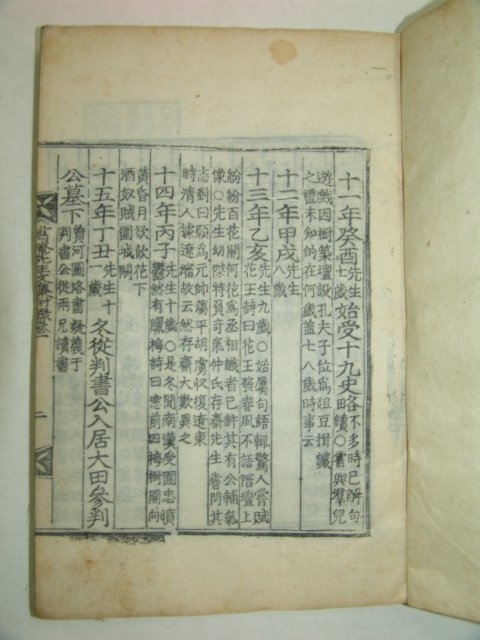 十一年癸酉 先生七歲 始受十九史略 不多時已解句讀○嘗與羣兒
遊戲因樹築壇設孔夫子位爲俎豆揖讓
之禮未知的在何歲盖七八歲時事云
十二年甲戌 先生八歲
十三年乙亥 先生九歲○始屬句語輒驚人嘗賦花王詩曰花王發春風不語階壇上
紛紛百花開何花爲丞相識者已許其有公輔氣
像○先生幼深特負奇仲氏存齋先生嘗問其
志對曰願爲元帥蕩平胡虜収復遼東
時清人據遼瀋故云然存齋大歎異之
十四年丙子 先生十歲○是冬聞南漢受圍忠憤鬱然有臘梅詩曰窓前四梅樹開向
黃昏月欲飮花下
酒奴賊圍城闕
十五年丁丑 先生十一歲 冬從判書公入居大田參判
公墓下 質河圖洛書疑義于判書公從兩兄讀書